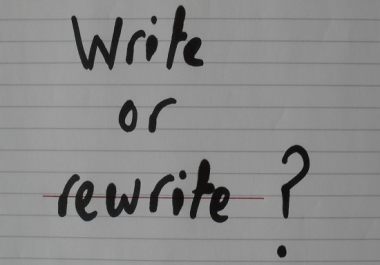 Write
or
rewrite ?